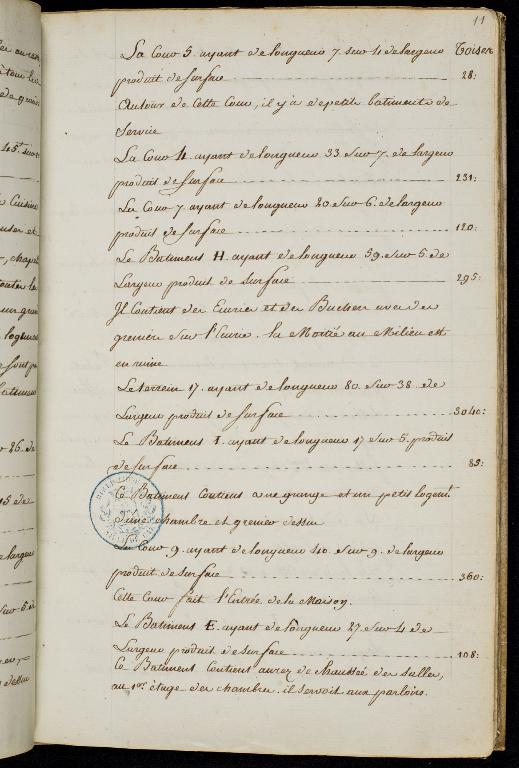 11
Toises
La Cour 5. ayant de longueur 7. sur 4 de largeur
produit de surface 28:
Autour de Cette Cour, il y a de petits batiments de
Service
La Cour 4. ayant de longueur 33 sur 7. de largeur
produit de surface 231:
La Cour 7. ayant de longueur 20 sur 6. de largeur
produit de surface 120:
Le Batiment H. ayant de longueur 59. sur 5. de
Largeur produit de surface 295:
Il Contient des Ecuries et des Buchers avec des
greniers sur l'Ecurie. la Moitié au Milieu est
en ruine
Le terrein 17. ayant de longueur 80. sur 38. de
Largeur produit de surface 3040:
Le Batiment I. ayant de longueur 17 sur 5. produit
de surface 85:
Ce Batiment Contient une grange et un petit logent.
d'une chambre et grenier dessus
La Cour 9. ayant de longueur 40. sur 9. de largeur
produit de surface 360:
Cette Cour fait l'Entrée de la Maison.
Le Batiment E. ayant de longueur 27. sur 4 de
Largeur produit de surface 108:
Ce Batiment Contient au rez de chaussée des salles,
au 1er. étage des chambres. il servoit aux parloirs.